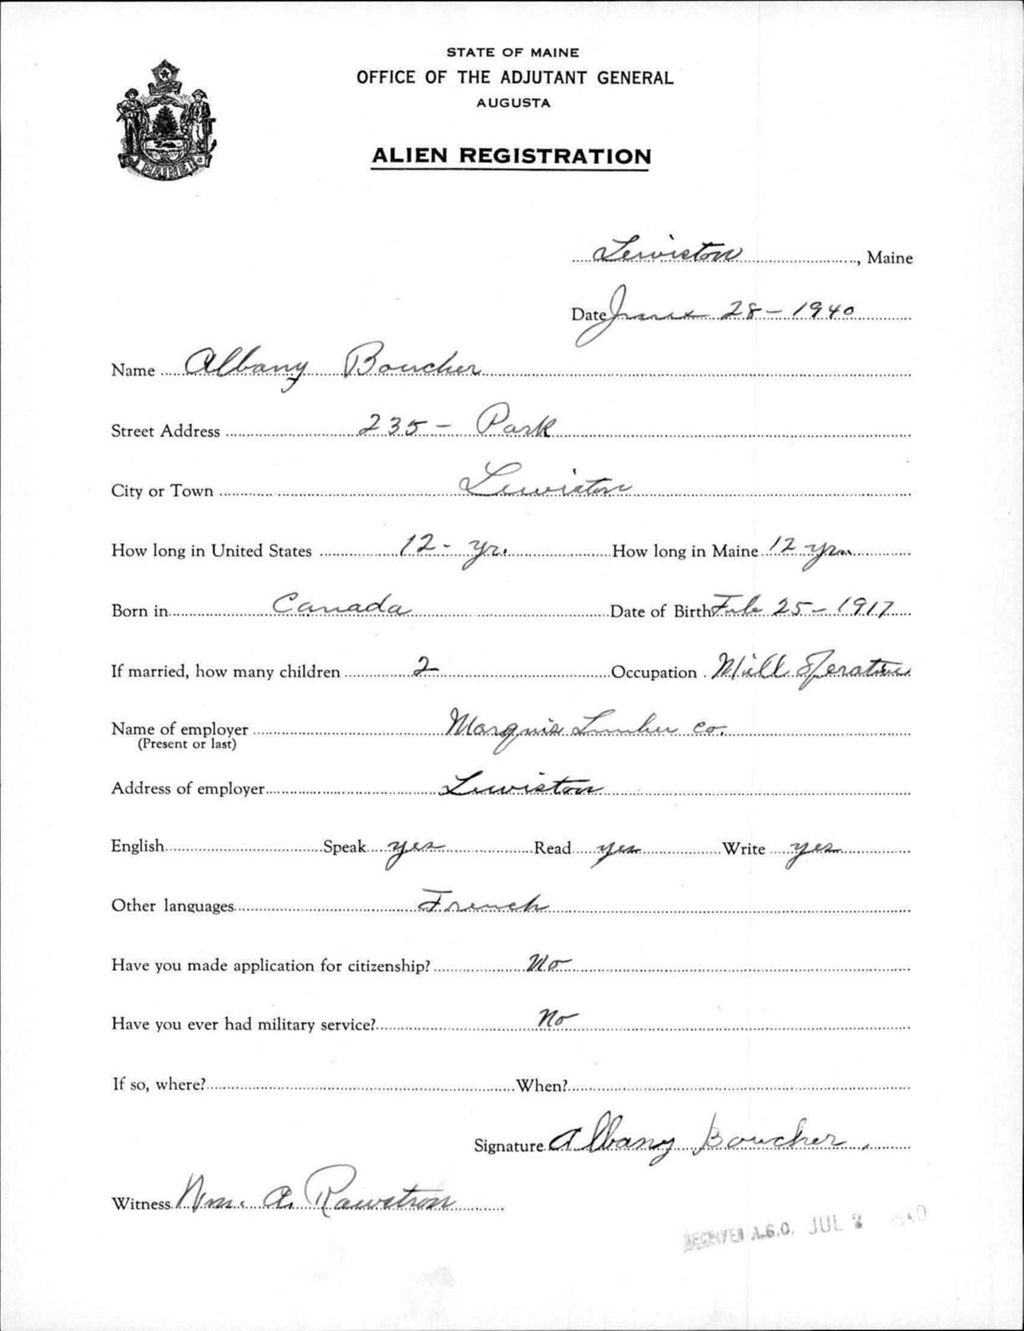 STATE OF MAINE
OFFICE OF THE ADJUTANT GENERAL
AUGUSTA
ALIEN REGISTRATION
MAINE
Lewiston, Maine
Date June 28 - 1940
Name Albany Boucher
Street Address 235 - Park
City or Town Lewiston
How long in United States 12 - yr. How long in Maine 12 yrs.
Born in Canada Date of Birth Feb 25 - 1917
If married, how many children 2 Occupation Mill Operative
Name of employer Marquis Lumber Co.
(Present or last)
Address of employer Lewiston
English Speak yes Read yes Write yes
Other languages French
Have you made application for citizenship? No
Have you ever had military service? No
If so, where? When?
Signature Albany Boucher
Witness Wm. A. Rawstron
RECEIVED A.G.O. JUL 2 1940